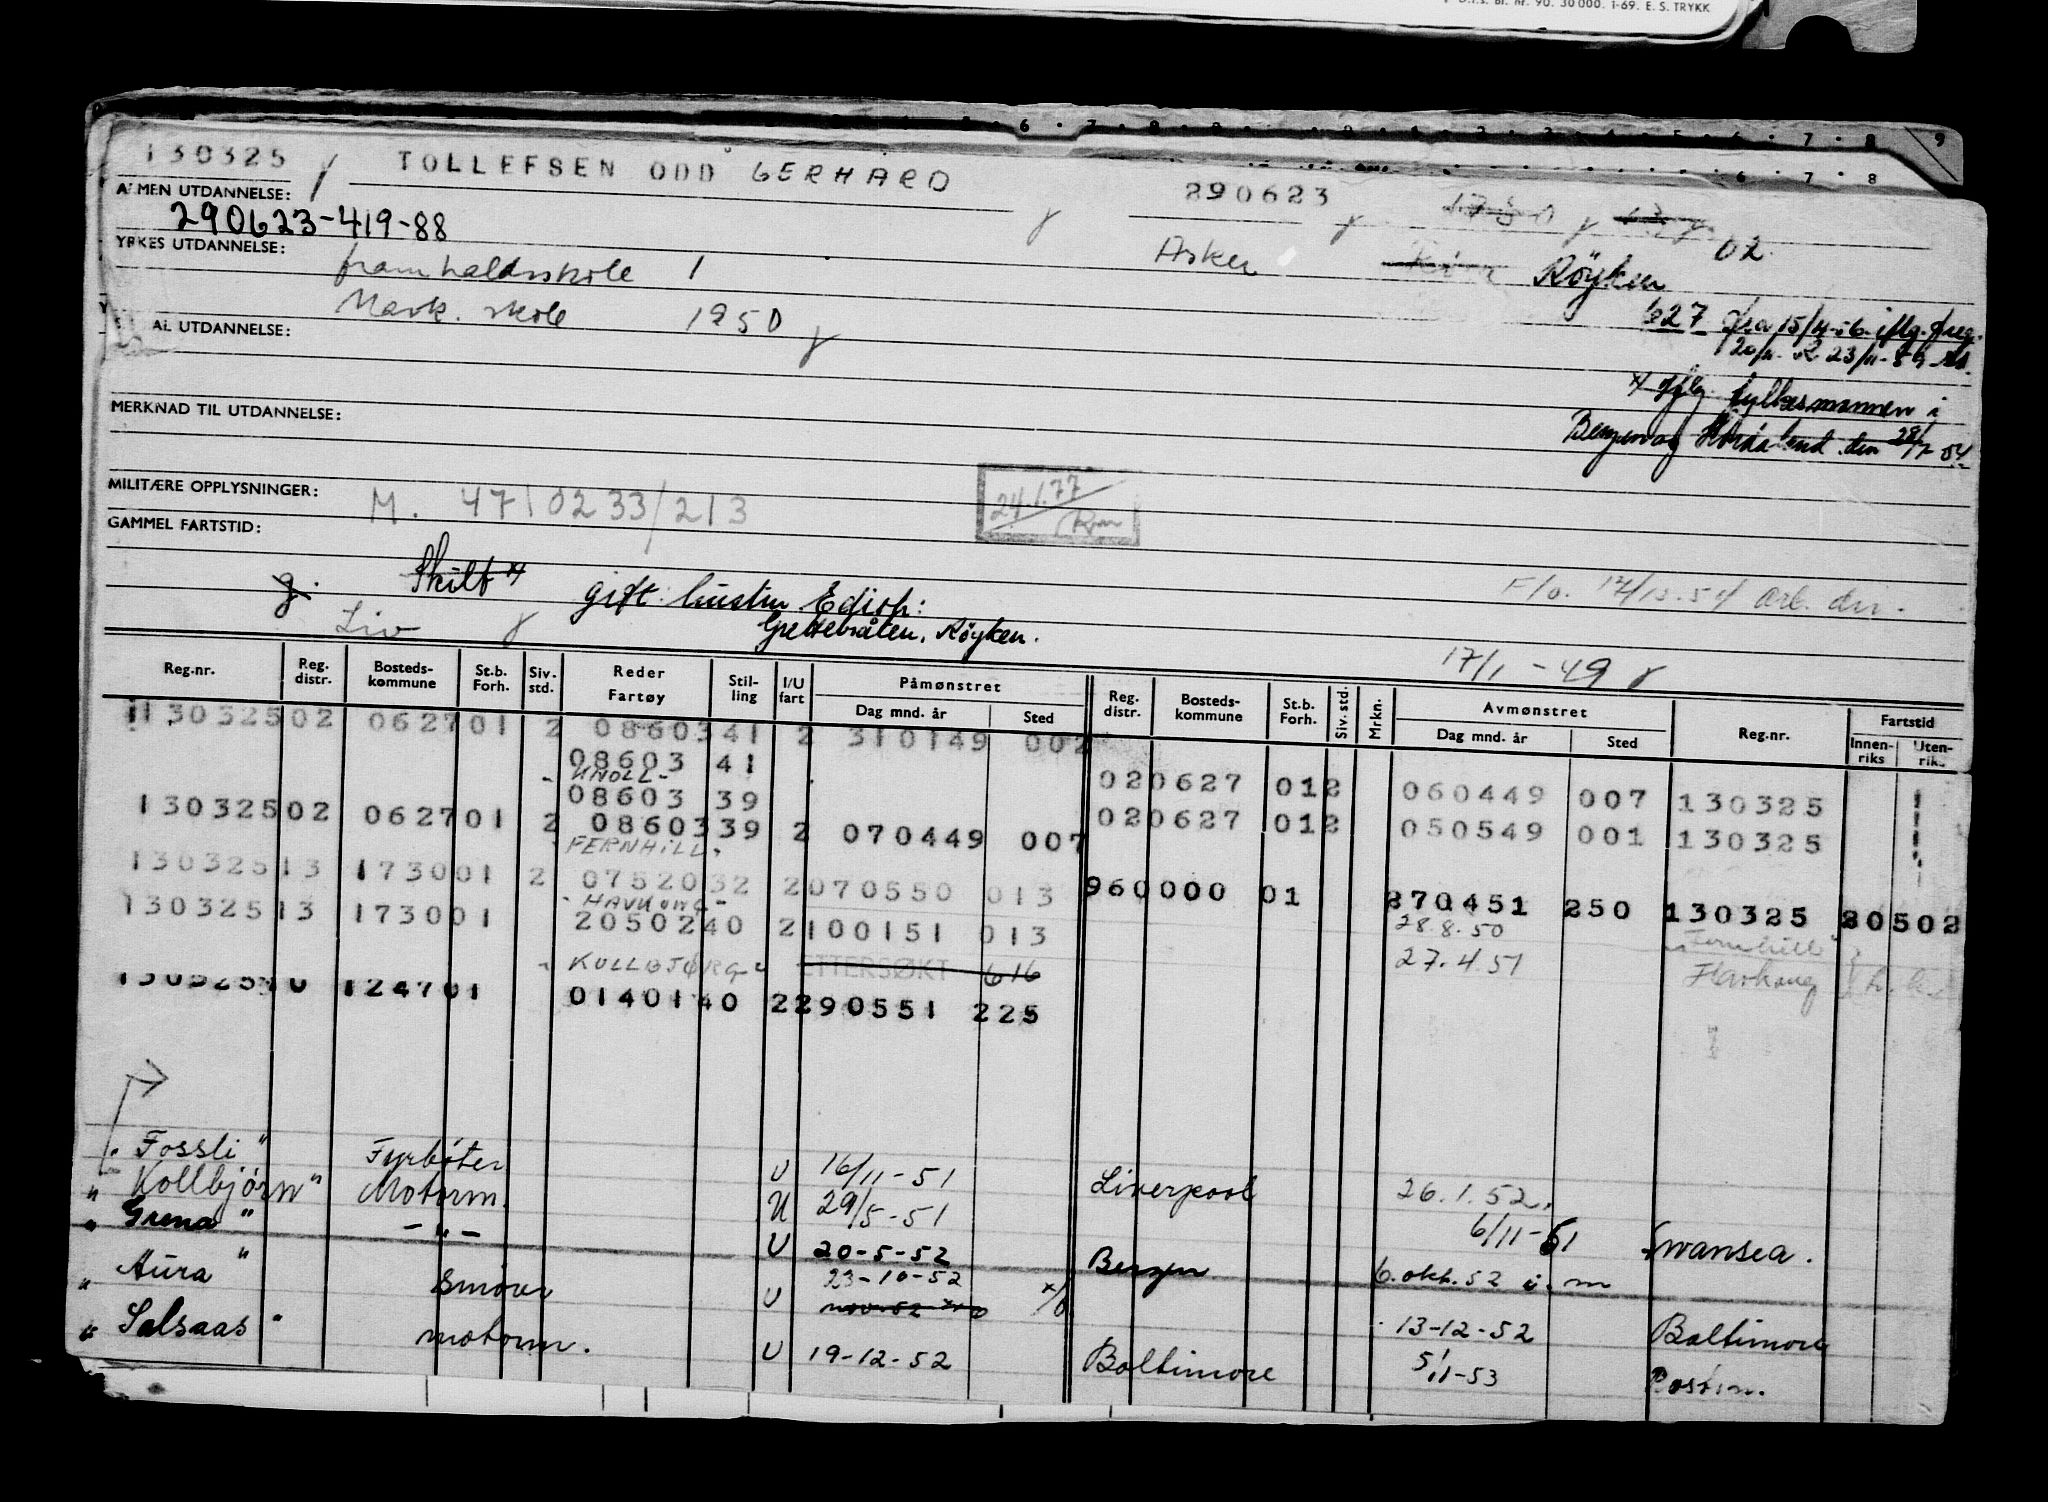 D.I.S. Bl. nr. 90. 30 000. 1-69. E. S. TRYKK
130325 TOLLEFSEN ODD GERHARD 290623
ALMEN UTDANNELSE:
290623-419-88
02
YRKES UTDANNELSE:
framhaldsskole 1 Asker Röyken
Mask. skole 1950
627 fra 15/4-56 iflg. freg.
AL UTDANNELSE:
iflg. fylkesmannen i
MERKNAD TIL UTDANNELSE:
Bergen og Hordaland den 28/7-54
MILITÆRE OPPLYSNINGER: M. 4710233/213
24.1.77
GAMMEL FARTSTID:
Skilt x gift: hustru Edith:
F/o. 17/12.54 arb. dir.
Liv Grettebråten, Røyken.
17/1-49
Reg.nr. Reg. distr. Bosteds-kommune St.b. Forh. Siv. std. Reder Fartøy Stil-ling I/U fart Påmønstret Dag mnd. år Sted Reg. distr. Bosteds-kommune St.b. Forh. Siv. std. Mrkn. Avmønstret Dag mnd. år Sted Reg.nr. Fartstid Innen-riks Uten-riks
130325 02 0627 01 2 08603 41 2 310149 002
08603 41
KNOLL 02 0627 01 2 060449 007 130325
08603 39
130325 02 0627 01 2 08603 39 2 070449 007 02 0627 01 2 050549 001 130325
FERNHILL
130325 13 1730 01 2 07520 32 2 070550 013 96 0000 01 270451 250 130325 20502
HAVKONG 28.8.50 Fernhill
130325 13 1730 01 20502 40 2 100151 013
KOLLBJØRG ETTERSØKT 616 27.4.51 Havkong
130325 1247 01 01401 40 2 290551 225
"Fossli" Fyrbøter U 16/11-51 Liverpool 26.1.52.
"Kollbjørn" Motorm. U 29/5-51 6/11-51 Swansea.
"Grena" -"- U 20-5-52 Bergen 6. okt. 52 i. m
"Aura" Smører U 23-10-52 13-12-52 Baltimore
"Salsaas" motorm. U 19-12-52 Baltimore 5/1-53 Boston.